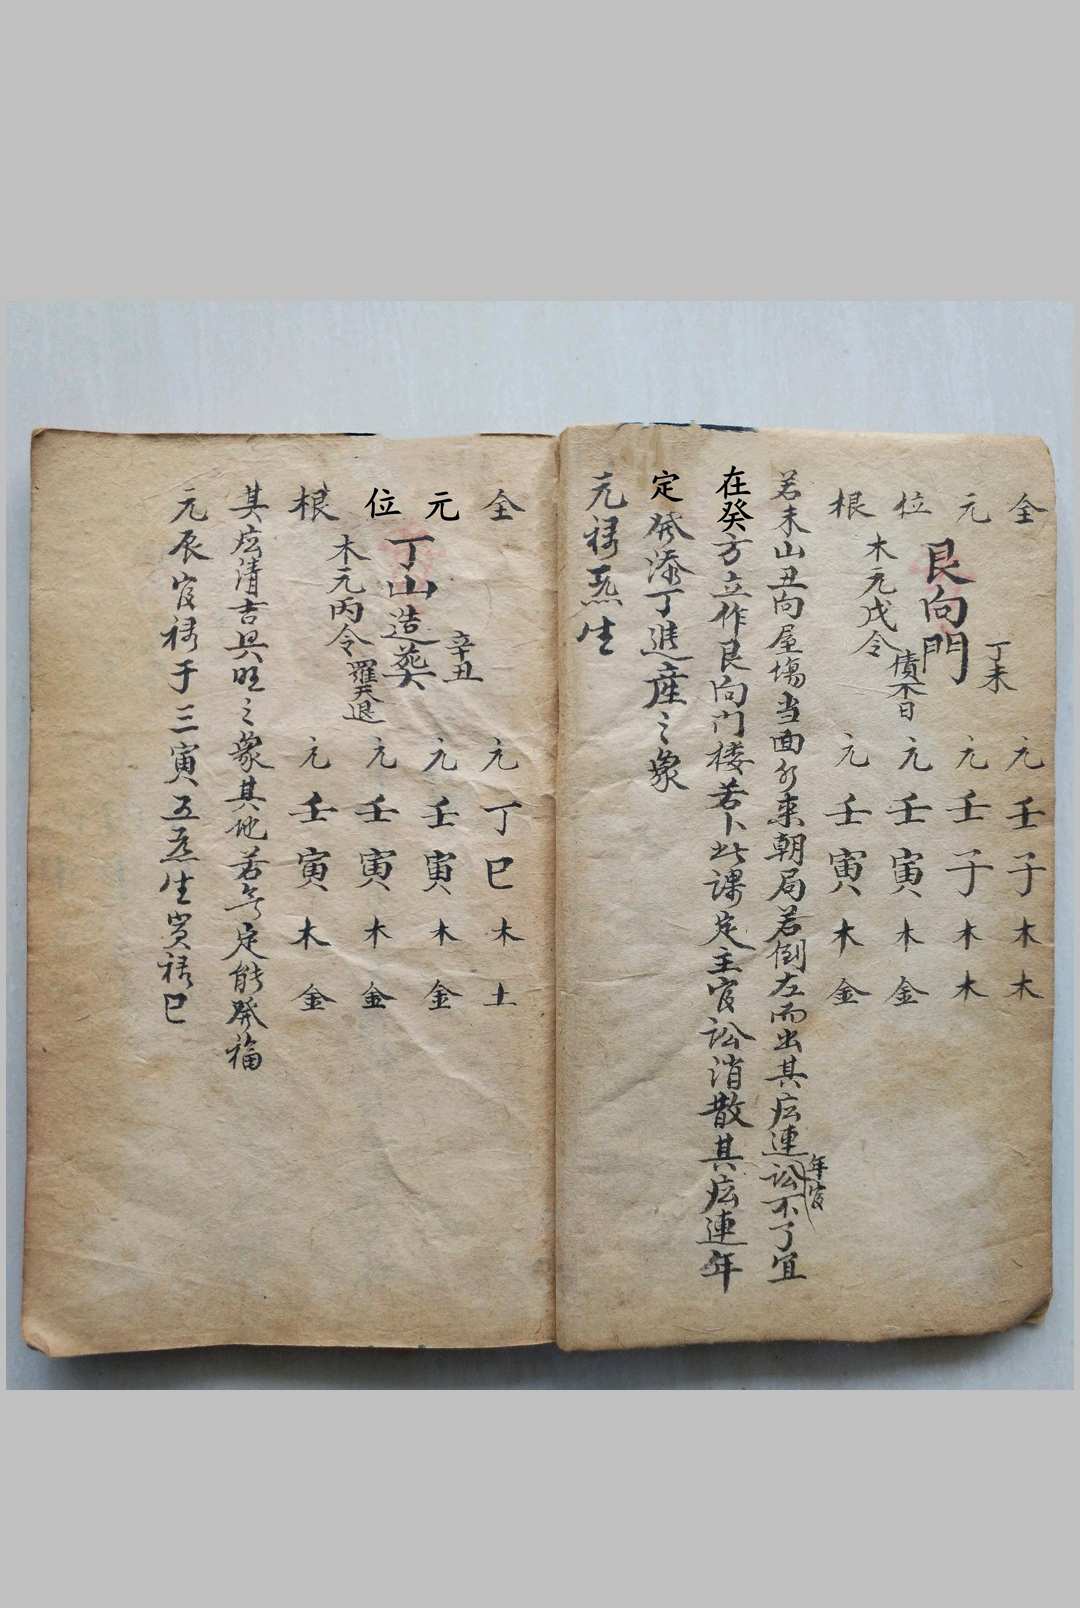 全 元壬子木木
丁未
元 元壬子木木
艮向門
位 元壬寅木金
債不日
木元戊令
根 元壬寅木金
若未山丑向屋場当面水來朝局若倒左而出其応連年官訟不了宜
在癸方立作艮向门楼若卜此課定主官訟消散其応連年
定發添丁進産之象
元禄長生
全 元丁巳木土
辛丑
元 元壬寅木金
丁山造葬
位 元壬寅木金
羅天退
木元丙令
根 元壬寅木金
其応清吉興旺之象其地若台定能發福
元辰官禄于三寅五長生貴禄巳